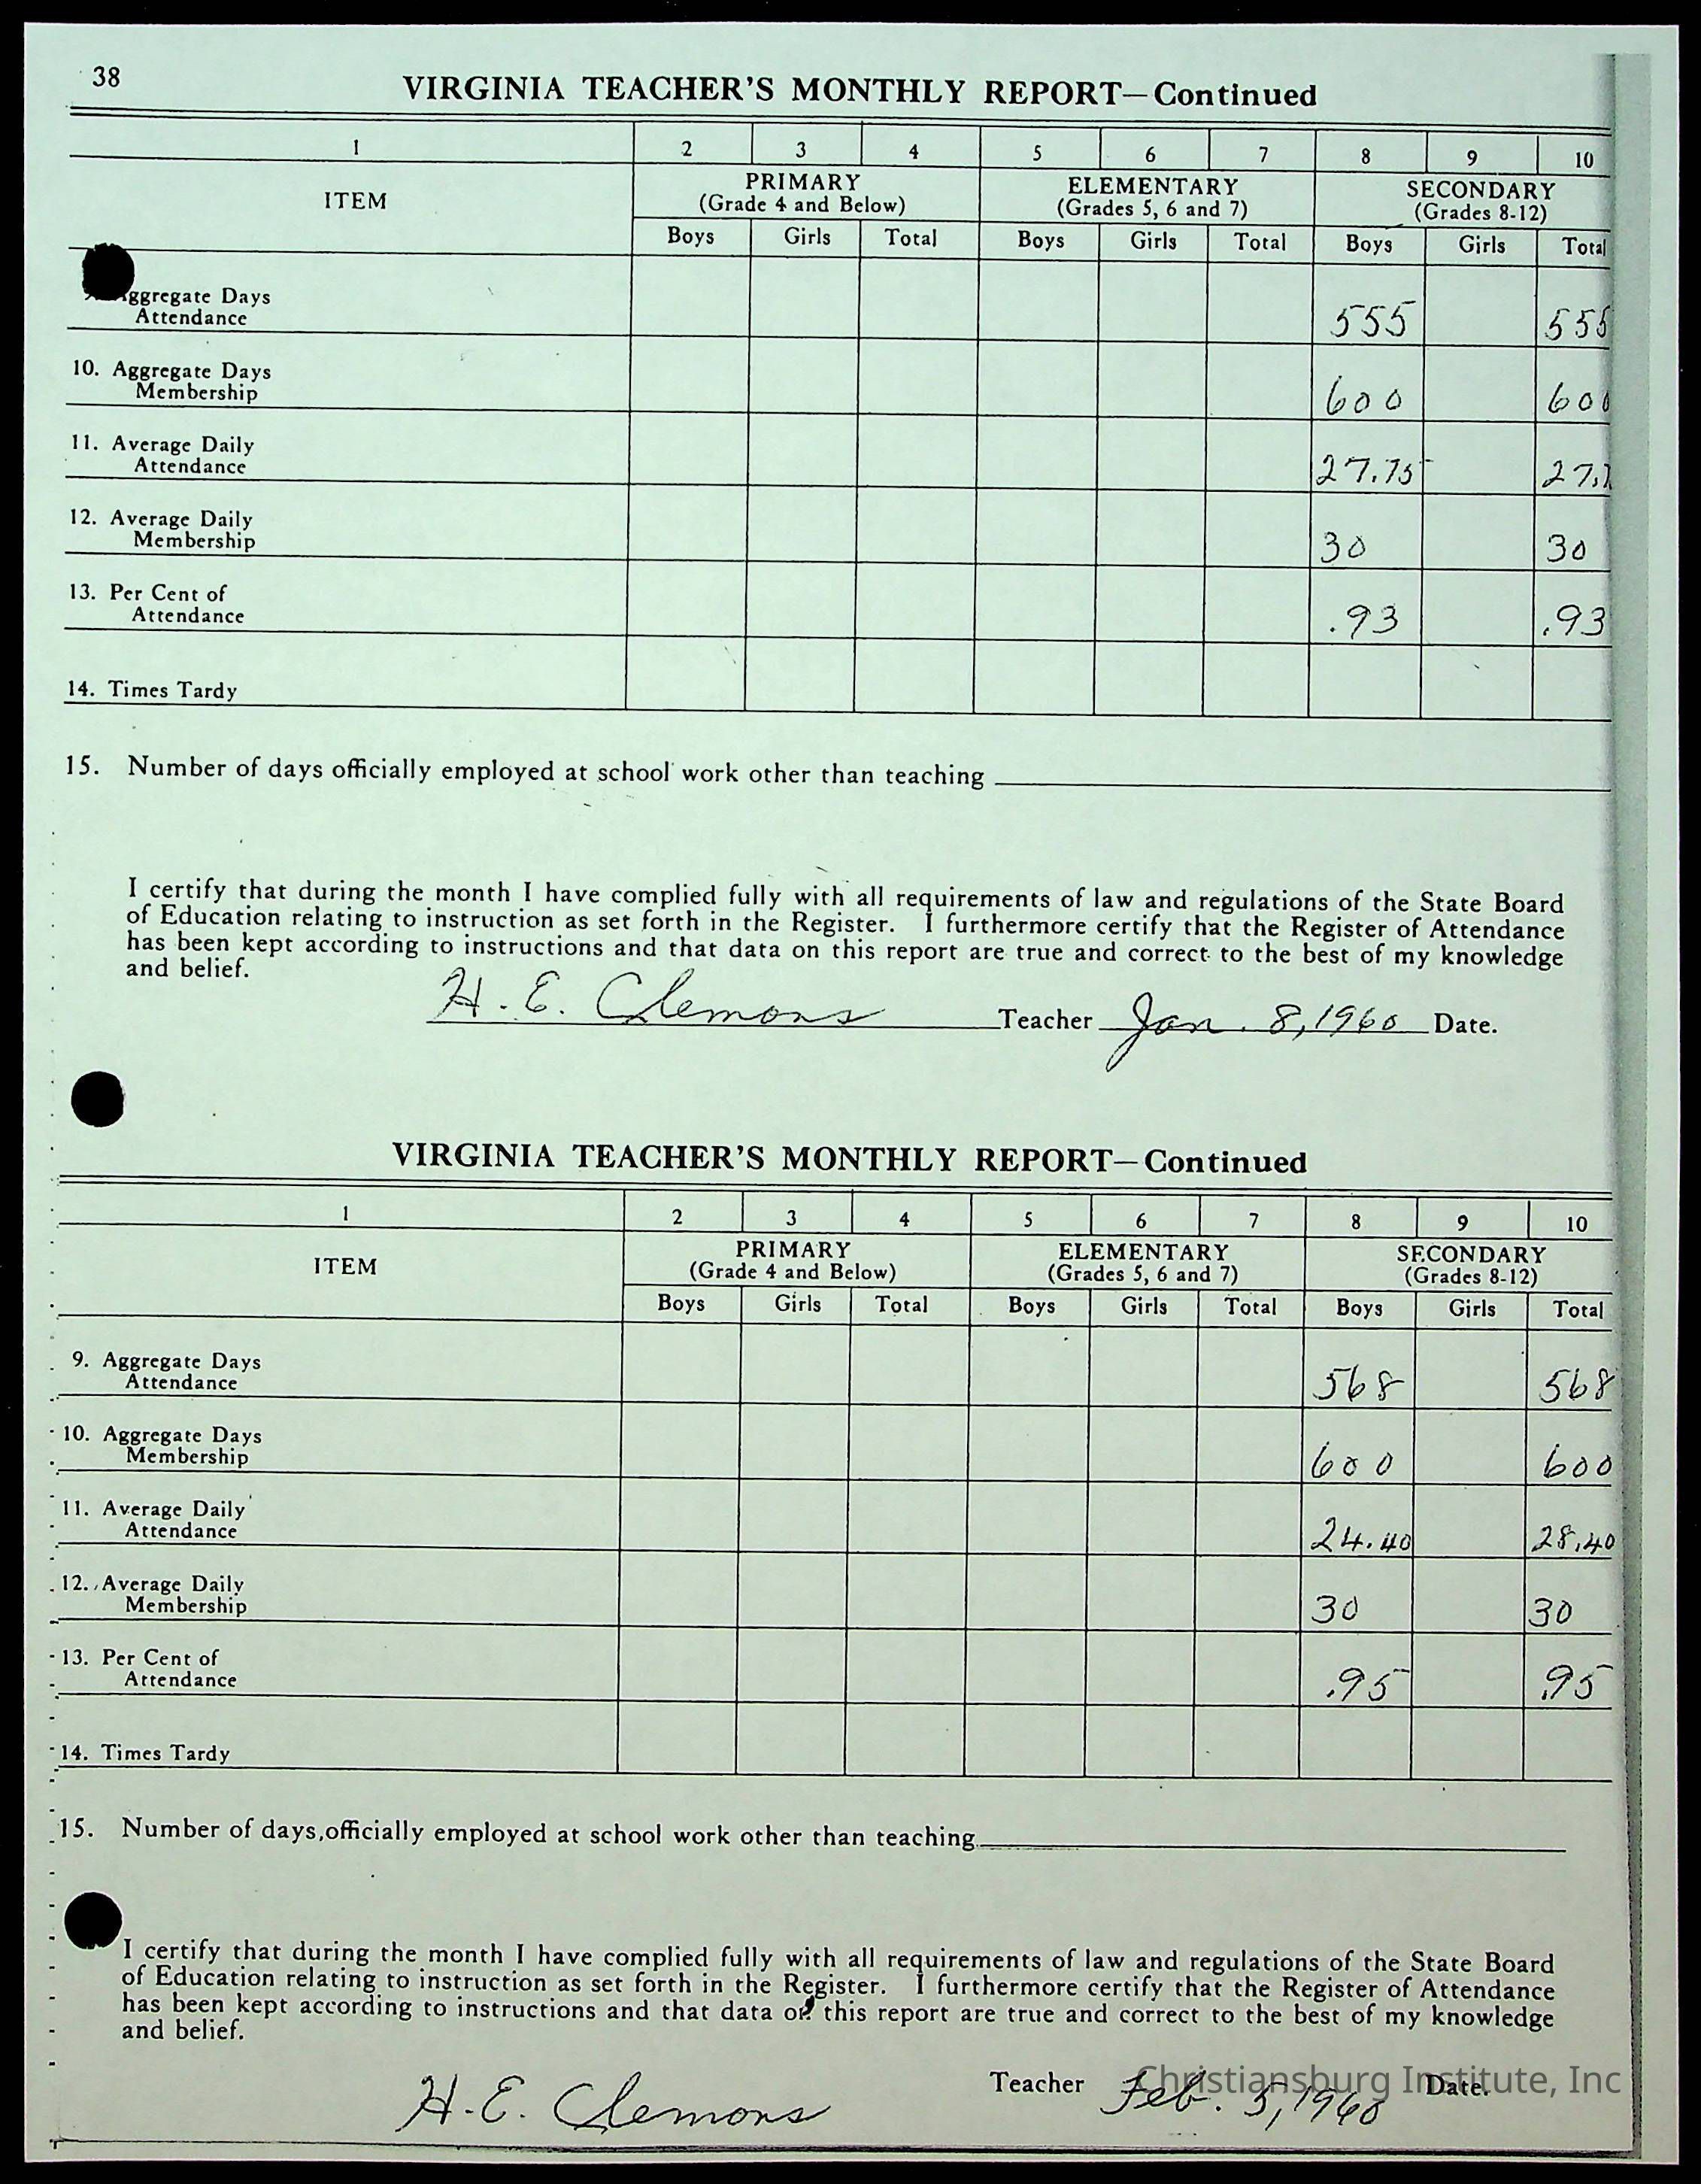 38
VIRGINIA TEACHER'S MONTHLY REPORT—Continued
1 2 3 4 5 6 7 8 9 10
ITEM PRIMARY (Grade 4 and Below) ELEMENTARY (Grades 5, 6 and 7) SECONDARY (Grades 8-12)
Boys Girls Total Boys Girls Total Boys Girls Total
ggregate Days
Attendance 555 555
10. Aggregate Days
Membership 600 600
11. Average Daily
Attendance 27.75 27.7
12. Average Daily
Membership 30 30
13. Per Cent of
Attendance .93 .93
14. Times Tardy
15. Number of days officially employed at school work other than teaching
I certify that during the month I have complied fully with all requirements of law and regulations of the State Board
of Education relating to instruction as set forth in the Register. I furthermore certify that the Register of Attendance
has been kept according to instructions and that data on this report are true and correct to the best of my knowledge
and belief.
H. E. Clemons Teacher Jan. 8, 1960 Date.
VIRGINIA TEACHER'S MONTHLY REPORT—Continued
1 2 3 4 5 6 7 8 9 10
ITEM PRIMARY (Grade 4 and Below) ELEMENTARY (Grades 5, 6 and 7) SECONDARY (Grades 8-12)
Boys Girls Total Boys Girls Total Boys Girls Total
9. Aggregate Days
Attendance 568 568
10. Aggregate Days
Membership 600 600
11. Average Daily
Attendance 24.40 28.40
12. Average Daily
Membership 30 30
13. Per Cent of
Attendance .95 .95
14. Times Tardy
15. Number of days officially employed at school work other than teaching
I certify that during the month I have complied fully with all requirements of law and regulations of the State Board
of Education relating to instruction as set forth in the Register. I furthermore certify that the Register of Attendance
has been kept according to instructions and that data on this report are true and correct to the best of my knowledge
and belief.
H. E. Clemons Teacher Feb. 5, 1960 Date.
Christiansburg Institute, Inc